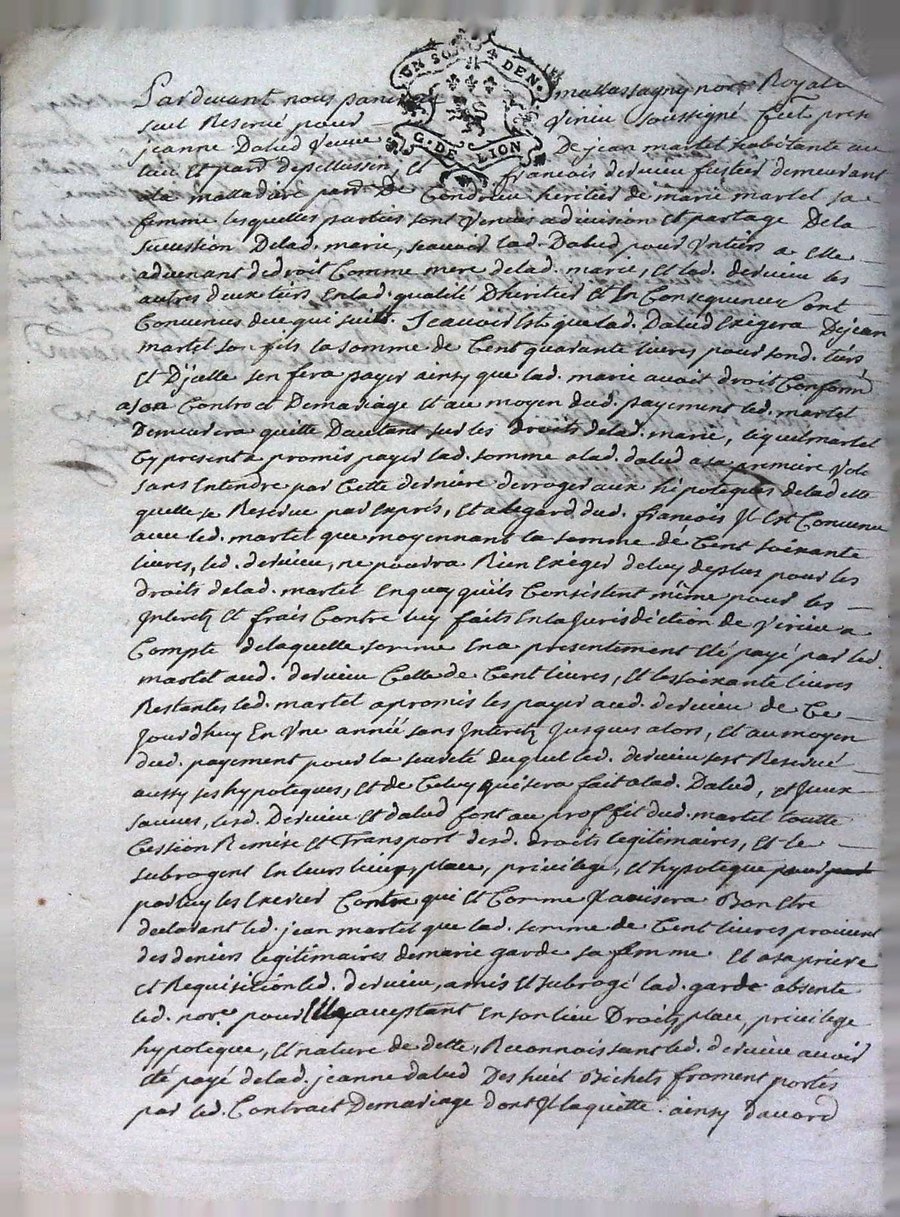 UN SOL 4 DEN.
G. DE LION
Pardevant nous mallassagny nore Royale
seul Reservé pour Virieu soussigné fut present
jeanne Dalud Veuve De jean martel habitante au
lieu et paroisse de pellussin, et françois dervieu fustier demeurant
a la malladiere paroisse De Condrieu heritier de marie martel sa
femme lesquelles parties sont Venües a division et partage De la
succession De lad. marie, scavoir lad. Dalud pour Un tiers a elle
advenant de droit Comme mere de lad. marie, et led. dervieu les
autres deux tiers En lad. qualité D'heritier et En Consequence Sont
Convenus de ce qui suit. Scavoir Est que lad. Dalud Exigera De jean
martel son fils la somme de Cent quarante livres pour sond. tiers
et D'jcelle sen fera payer ainsy que lad. marie avoit droit Conform.
a son Contract De mariage et au moyen dud. payement led. martel
Demeurera quitte D'autant sur les Droits de lad. marie, lequel martel
Cy present a promis payer lad. somme a lad. dalud a sa premiere Vol
sans Entendre par Cette derniere derroger aux hipoteques de lad. dette
quelle se Reserve par exprés, et a legard dud. françois Jl Est Convenu
avec led. martel que moyennant la somme de Cent soixante
livres, led. dervieu, ne pourra Rien Exiger de luy de plus pour les
droits de lad. martel En quoy qu'ils Consistent même pour les
Jnterets et frais Contre luy faits En la Jurisdiction de Virieu a
Compte de laquelle somme En a presentement eté payé par led.
martel aud. dervieu Celle de Cent livres, et les soixante livres
Restantes led. martel a promis les payer aud. dervieu de Ce
Jourdhuy En Une année sans Jnterets Jusques alors, et au moyen
dud. payement pour la sureté duquel led. dervieu sest Reservé
aussy ses hypoteques, et de Celuy qui sera fait a lad. Dalud, et Jceux
sauves, lesd. Dervieu et dalud font au proffit dud. martel toutte
Cession Remise et Transport desd. droits legitimaires, et le
subrogent En leurs lieux, place, privilege, et hypoteque
par luy les Exercer Contre qui et Comme Jl avisera Bon Etre
declarant led. jean martel que lad. somme de Cent livres provient
des deniers legitimaires de marie garde sa femme et a sa priere
et Requisition led. dervieu, a mis et subrogé lad. garde absente
led. nore. pour Elle acceptant En son lieu Droits, place, privilege
hypoteque, et nature de dette, Reconnoissant led. dervieu avoir
eté payé de lad. jeanne dalud Des huit Bichets froment portés
par led. Contrait De mariage dont Jl la quitte. ainsy d'accord